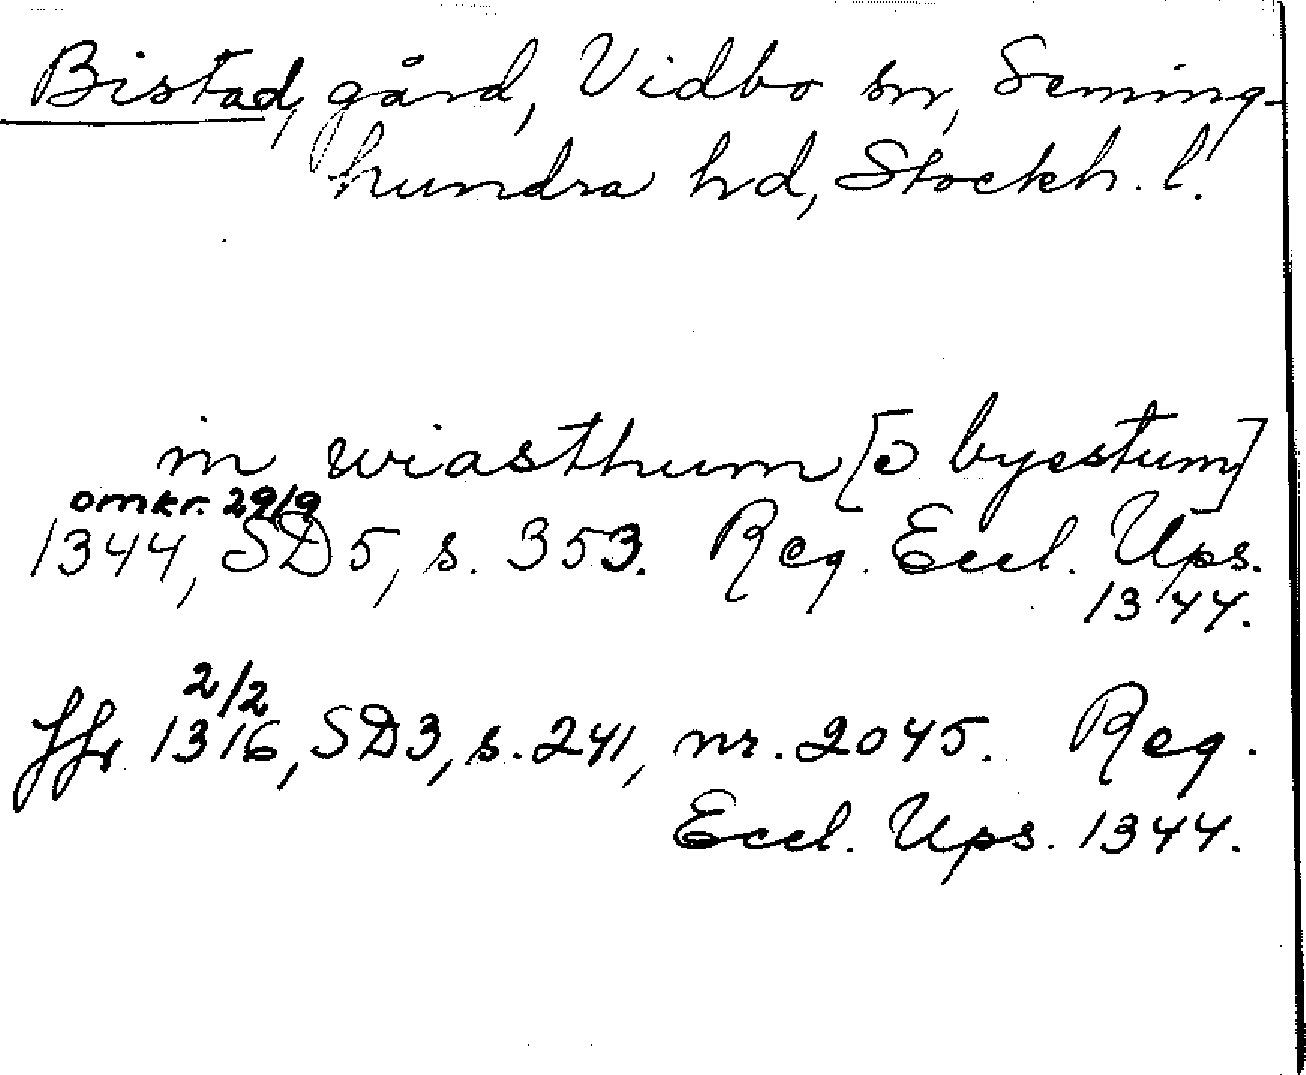 Bistad, gård, Vidbo sn, Seming-
hundra hd, Stockh. l.
in wiasthum [ɔ byestum]
omkr. 29/9
1344, SD5, s. 353. Reg. Eccl. Ups.
1344.
2/2
Jfr 1316, SD3, s. 241, nr. 2045. Reg.
Eccl. Ups. 1344.